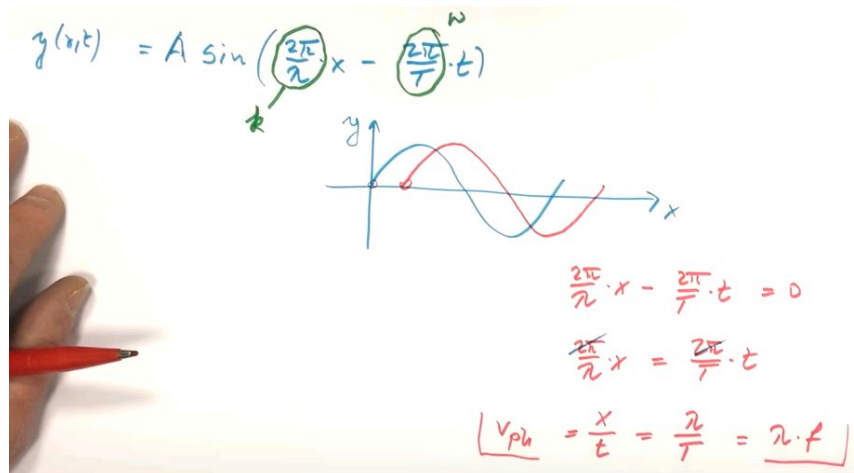 y(x,t) = A sin(2π/λ · x − 2π/T · t)
ω
k
y
x
2π/λ · x − 2π/T · t = 0
2π/λ · x = 2π/T · t
v_ph = x/t = λ/T = λ · f